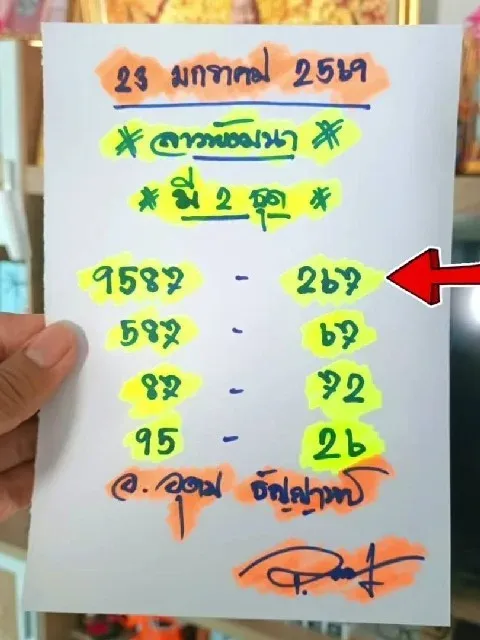 23 มกราคม 2569
* ลาวพัฒนา *
* มี 2 ชุด *
9587 - 267
587 - 67
87 - 72
95 - 26
อ. อุดม ธัญญาวงศ์